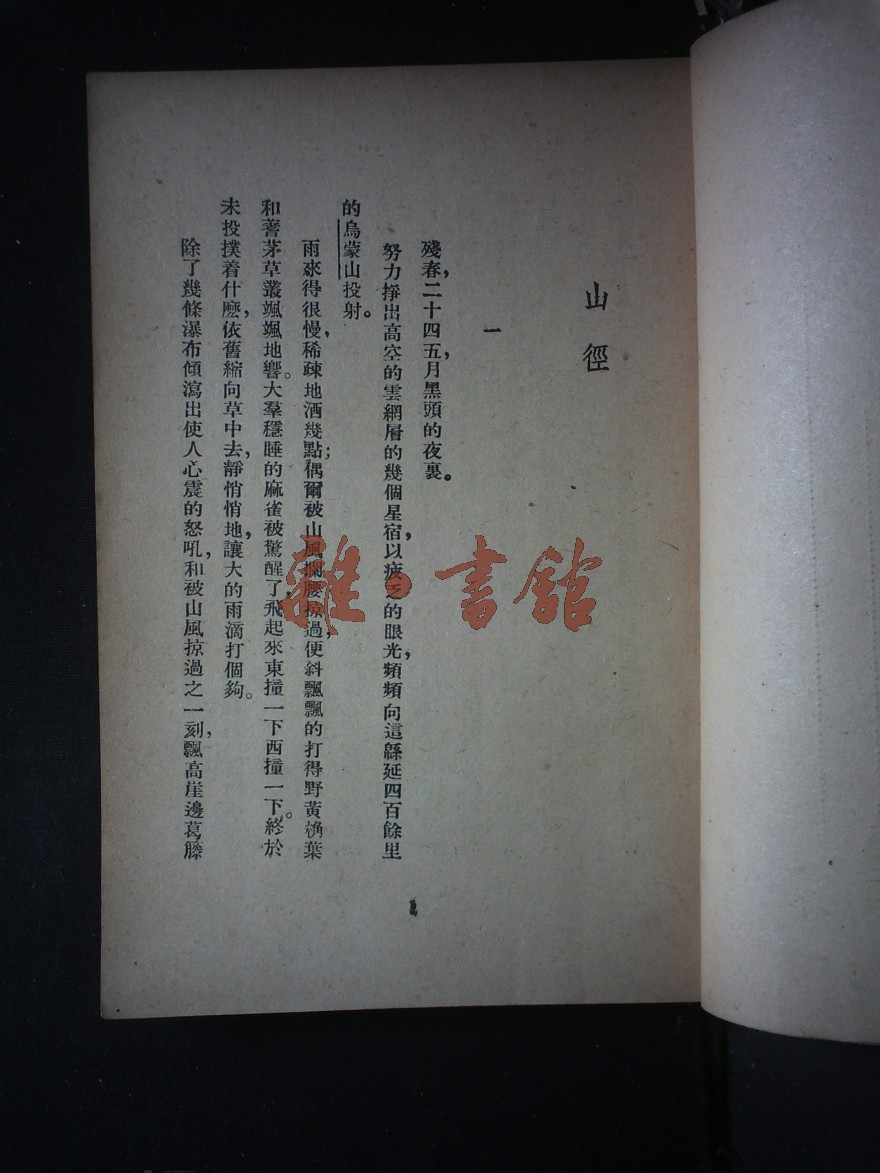 山徑
一
殘春，二十四五，月黑頭的夜裏。
努力掙出高空的雲網層的幾個星宿，以疲乏的眼光，頻頻向這緜延四百餘里
的烏蒙山投射。
雨來得很慢，稀疎地洒幾點；偶爾被山風攔腰掠過，便斜飄飄的打得野黃桷葉
和蓍茅草叢颯颯地響。大羣穩睡的麻雀被驚醒了，飛起來東撞一下西撞一下。終於
未投撲着什麽，依舊縮向草中去，靜悄悄地，讓大的雨滴打個夠。
除了幾條瀑布傾瀉出使人心震的怒吼，和被山風掠過之一刻，飄高崖邊葛藤
雜·書館